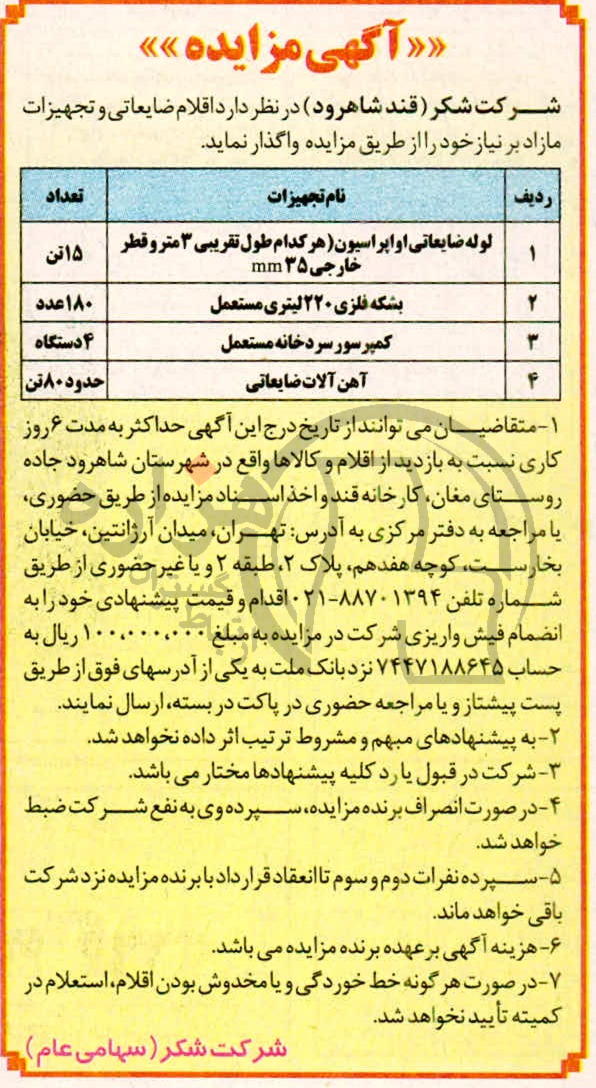 «« آگهی مزایده »»
شرکت شکر (قند شاهرود) در نظر دارد اقلام ضایعاتی و تجهیزات
مازاد بر نیاز خود را از طریق مزایده واگذار نماید.
ردیف نام تجهیزات تعداد
۱ لوله ضایعاتی اواپراسیون (هر کدام طول تقریبی ۳ متر و قطر
خارجی ۳۵ mm ۱۵ تن
۲ بشکه فلزی ۲۲۰ لیتری مستعمل ۱۸۰ عدد
۳ کمپرسور سردخانه مستعمل ۴ دستگاه
۴ آهن آلات ضایعاتی حدود ۸۰ تن
۱-متقاضیان می توانند از تاریخ درج این آگهی حداکثر به مدت ۶ روز
کاری نسبت به بازدید از اقلام و کالاها واقع در شهرستان شاهرود جاده
روستای مغان، کارخانه قند و اخذ اسناد مزایده از طریق حضوری،
یا مراجعه به دفتر مرکزی به آدرس: تهران، میدان آرژانتین، خیابان
بخارست، کوچه هفدهم، پلاک ۲، طبقه ۲ و یا غیر حضوری از طریق
شماره تلفن ۸۸۷۰۱۳۹۴-۰۲۱ اقدام و قیمت پیشنهادی خود را به
انضمام فیش واریزی شرکت در مزایده به مبلغ ۱۰۰،۰۰۰،۰۰۰ ریال به
حساب ۷۴۴۷۱۸۸۶۴۵ نزد بانک ملت به یکی از آدرسهای فوق از طریق
پست پیشتاز و یا مراجعه حضوری در پاکت در بسته، ارسال نمایند.
۲-به پیشنهادهای مبهم و مشروط ترتیب اثر داده نخواهد شد.
۳-شرکت در قبول یا رد کلیه پیشنهادها مختار می باشد.
۴-در صورت انصراف برنده مزایده، سپرده وی به نفع شرکت ضبط
خواهد شد.
۵-سپرده نفرات دوم و سوم تا انعقاد قرارداد با برنده مزایده نزد شرکت
باقی خواهد ماند.
۶-هزینه آگهی بر عهده برنده مزایده می باشد.
۷-در صورت هر گونه خط خوردگی و یا مخدوش بودن اقلام، استعلام در
کمیته تأیید نخواهد شد.
شرکت شکر (سهامی عام)